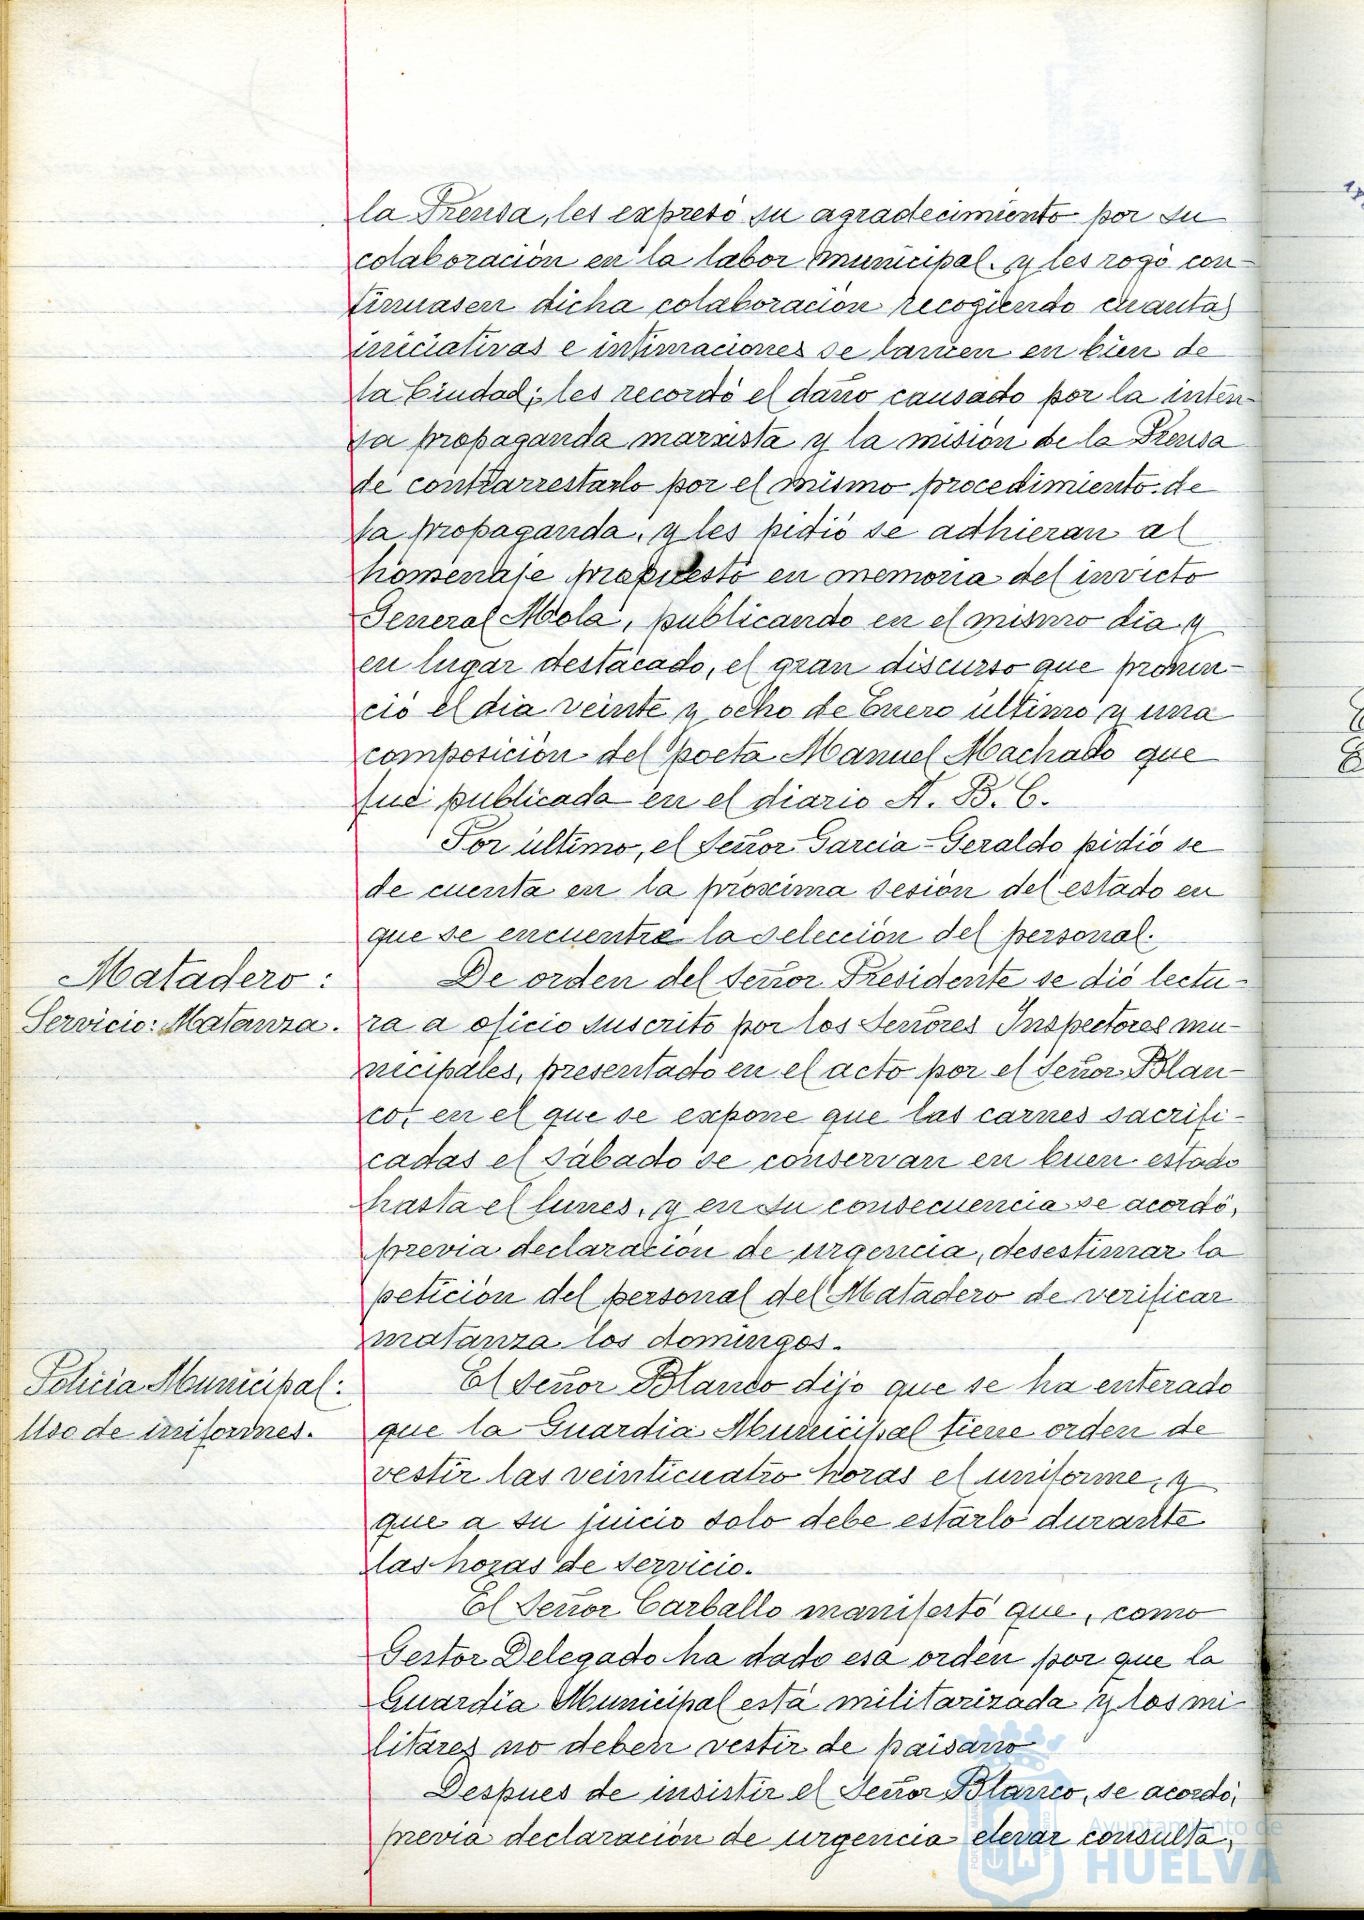 la Prensa, les expresó su agradecimiento por su
colaboración en la labor municipal. y les rogó con-
tinuasen dicha colaboración recogiendo cuantas
iniciativas e intimaciones se lancen en bien de
la Ciudad; les recordó el daño causado por la inten-
sa propaganda marxista y la misión de la Prensa
de contrarrestarlo por el mismo procedimiento de
la propaganda, y les pidió se adhieran al
homenaje propuesto en memoria del invicto
General Mola, publicando en el mismo dia y
en lugar destacado, el gran discurso que pronun-
ció el dia veinte y ocho de Enero último y una
composición del poeta Manuel Machado que
fué publicada en el diario A. B. C.
Por último, el Señor Garcia-Geraldo pidió se
de cuenta en la próxima sesión del estado en
que se encuentre la selección del personal.
Matadero:
Servicio: Matanza.
De orden del Señor Presidente se dió lectu-
ra a oficio suscrito por los Señores Inspectores mu-
nicipales, presentado en el acto por el Señor Blan-
co, en el que se expone que las carnes sacrifi-
cadas el sábado se conservan en buen estado
hasta el lunes, y en su consecuencia se acordó,
previa declaración de urgencia, desestimar la
petición del personal del Matadero de verificar
matanza los domingos.
Policia Municipal:
Uso de uniformes.
El Señor Blanco dijo que se ha enterado
que la Guardia Municipal tiene orden de
vestir las veinticuatro horas el uniforme, y
que a su juicio solo debe estarlo durante
las horas de servicio.
El Señor Carballo manifestó que, como
Gestor Delegado ha dado esa orden por que la
Guardia Municipal está militarizada y los mi
litares no deben vestir de paisano
Despues de insistir el Señor Blanco, se acordó,
previa declaración de urgencia elevar consulta,
Ayuntamiento de
HUELVA